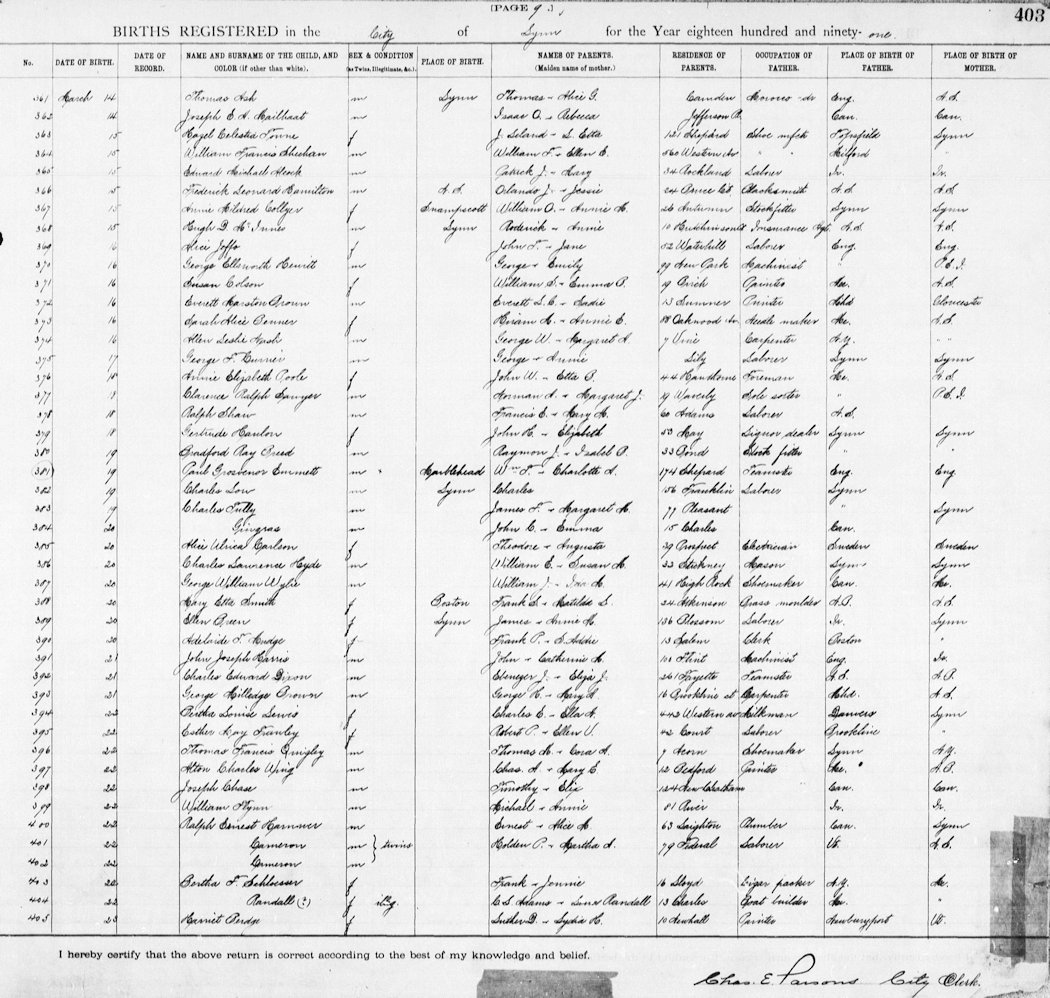 [PAGE 9.]
403
BIRTHS REGISTERED in the City of Lynn for the Year eighteen hundred and ninety-one.
No. DATE OF BIRTH. DATE OF RECORD. NAME AND SURNAME OF THE CHILD, AND COLOR (if other than white). SEX & CONDITION (as Twins, Illegitimate, &c.) PLACE OF BIRTH. NAMES OF PARENTS. (Maiden name of mother.) RESIDENCE OF PARENTS. OCCUPATION OF FATHER. PLACE OF BIRTH OF FATHER. PLACE OF BIRTH OF MOTHER.
361 March 14 Thomas Ash m Lynn Thomas - Alice G. Camden Morocco dr Eng. N.S.
362 14 Joseph E. A. Mailhaat m Isaac O. - Rebecca Jefferson Can. Can.
363 15 Hazel Celestia Towne f J. Leland - S. Etta 121 Shepard Shoe mfctr Topsfield Lynn
364 15 William Francis Sheehan m William F. - Ellen E. 560 Western Av " " Milford "
365 15 Edward Michael Alcock m Patrick J. - Mary 34 Rockland Laborer Ir. Ir.
366 15 Frederick Leonard Hamilton m N.S. Olando J. - Jessie Blacksmith N.S. N.S.
367 15 Annie Mildred Collyer f Swampscott William O. - Annie M. 26 Autumn Stockfitter Lynn Lynn
368 15 Hugh D. McInnes m Lynn Roderick - Annie 10 Hutchinson Ct Insurance Agt. N.S. N.S.
369 16 Alice Joffs f John F. - Jane 52 Waterhill Laborer Eng. Eng.
370 16 George Ellsworth Hewitt m George - Emily 99 New Park Machinist " P.E.I.
371 16 Susan Colson f William S. - Emma P. 19 Erich Painter Me. N.S.
372 16 Everett Marston Brown m Everett L.C. - Sadie 13 Sumner Printer Mhd Gloucester
373 16 Sarah Alice Conner f Hiram M. - Annie E. 88 Oakwood Av Needle maker Me. N.S.
374 16 Allen Leslie Nash m George W. - Margaret A. 7 Vine Carpenter N.Y. " "
375 17 George F. m George - Annie Lily Laborer Lynn Lynn
376 18 Annie Elizabeth Poole f John W. - Etta B. 44 Hawthorne Foreman Me. N.S.
377 Clarence Ralph Sawyer m Norman A. - Margaret J. 19 Waverly Sole sorter " P.E.I.
378 18 Ralph Shaw m Francis E. - Mary M. 60 Adams Laborer N.S.
379 18 Gertrude Hanlon f John H. - Elizabeth 53 May Liquor dealer Lynn Lynn
380 19 Bradford Ray Breed m Raymon J. - Isabel P. 33 Pond Stock fitter " "
381 19 Paul Grosvenor Emmett m " Marblehead Wm F. - Charlotte A. 174 Shepard Teamster Eng. Eng.
382 19 Charles Low m Lynn Charles 156 Franklin Laborer Lynn
383 19 Charles Tully m James F. - Margaret M. 77 Pleasant " Lynn
384 20 Gingras m John C. - Emma 15 Charles Can.
385 20 Alice Ulrica Carlson f Theodore - Augusta 39 Prospect Electrician Sweden Sweden
386 20 Charles Lawrence Hyde m William E. - Susan M. 33 Stickney Mason Lynn Lynn
387 20 George William Wylie m William J. - Ina M. 41 High Rock Shoemaker Can. Me.
388 20 Mary Etta Smith f Boston Frank S. - Matilda S. 24 Atkinson Brass moulder N.B. N.S.
389 20 Ellen Green f Lynn James - Annie M. 136 Blossom Laborer Ir. Lynn
390 20 Adelaide F. Mudge f Frank P. - S. Addie 13 Salem Clerk Boston "
391 21 John Joseph Harris m John - Catherine M. Flint Machinist Eng. Ir.
392 21 Charles Edward Dixon m Ebenezer J. - Eliza J. 261 Fayette Teamster N.S. N.B.
393 21 George Milledge Brown m George H. - Mary A. 16 Brookline st Carpenter Mhd. N.S.
394 22 Bertha Louise Lewis f Charles E. - Ella A. 442 Western av Milkman Danvers Lynn
395 22 Esther May Franley f Robert P. - Ellen V. 42 Court Laborer Brookline "
396 22 Thomas Francis Quigley m Thomas H. - Cora A. 7 Acorn Shoemaker Lynn N.Y.
397 22 Alton Charles Wing m Chas. A. - Mary E. 12 Bedford Painter Me. N.B.
398 22 Joseph Chase m Timothy - Eliz 124 New Chatham Can. Can.
399 22 William Flynn m Michael - Annie 81 River Ir. Ir.
400 22 Ralph Ernest Hammer m Ernest - Alice M. 63 Leighton Plumber Can. Lynn
401 22 Cameron m } twins Holden P. - Martha A. 79 Federal Laborer Vt. N.S.
402 22 Cameron m
403 22 Bertha F. Schlosser f Frank - Jennie 16 Lloyd Cigar packer N.Y. Me.
404 22 Randall (?) f illeg. C.S. Adams - Lena Randall 13 Charles Boat builder Me. "
405 23 Harriet Perdge f Luther D. - Lydia H. 10 Newhall Painter Newburyport Vt.
I hereby certify that the above return is correct according to the best of my knowledge and belief.
Chas. E. Parsons City Clerk.